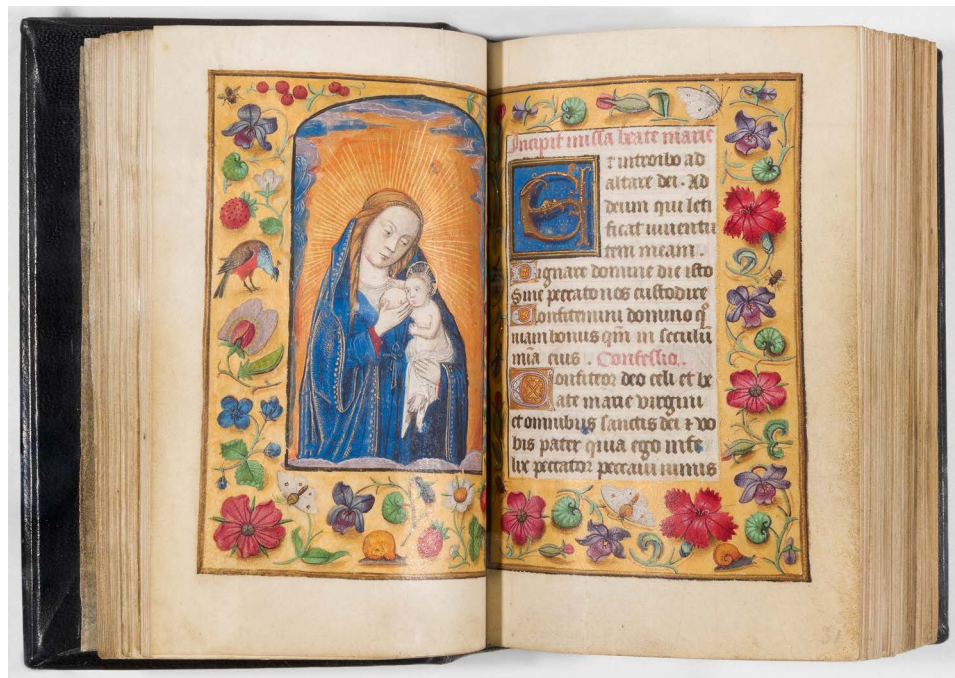 Incipit missa beate marie
Et introibo ad
altare dei. Ad
deum qui leti
ficat iuventu
tem meam.
Dignare domine die isto
Sine peccato nos custodire
Confitemini domino q̄
niam bonus qm̄ in seculū
mīa eius. Confessio.
Confiteor deo celi et be
ate marie virgini
et omnibus sanctis dei ⁊ vo
bis pater quia ego infe
lix peccator peccaui nimis
31